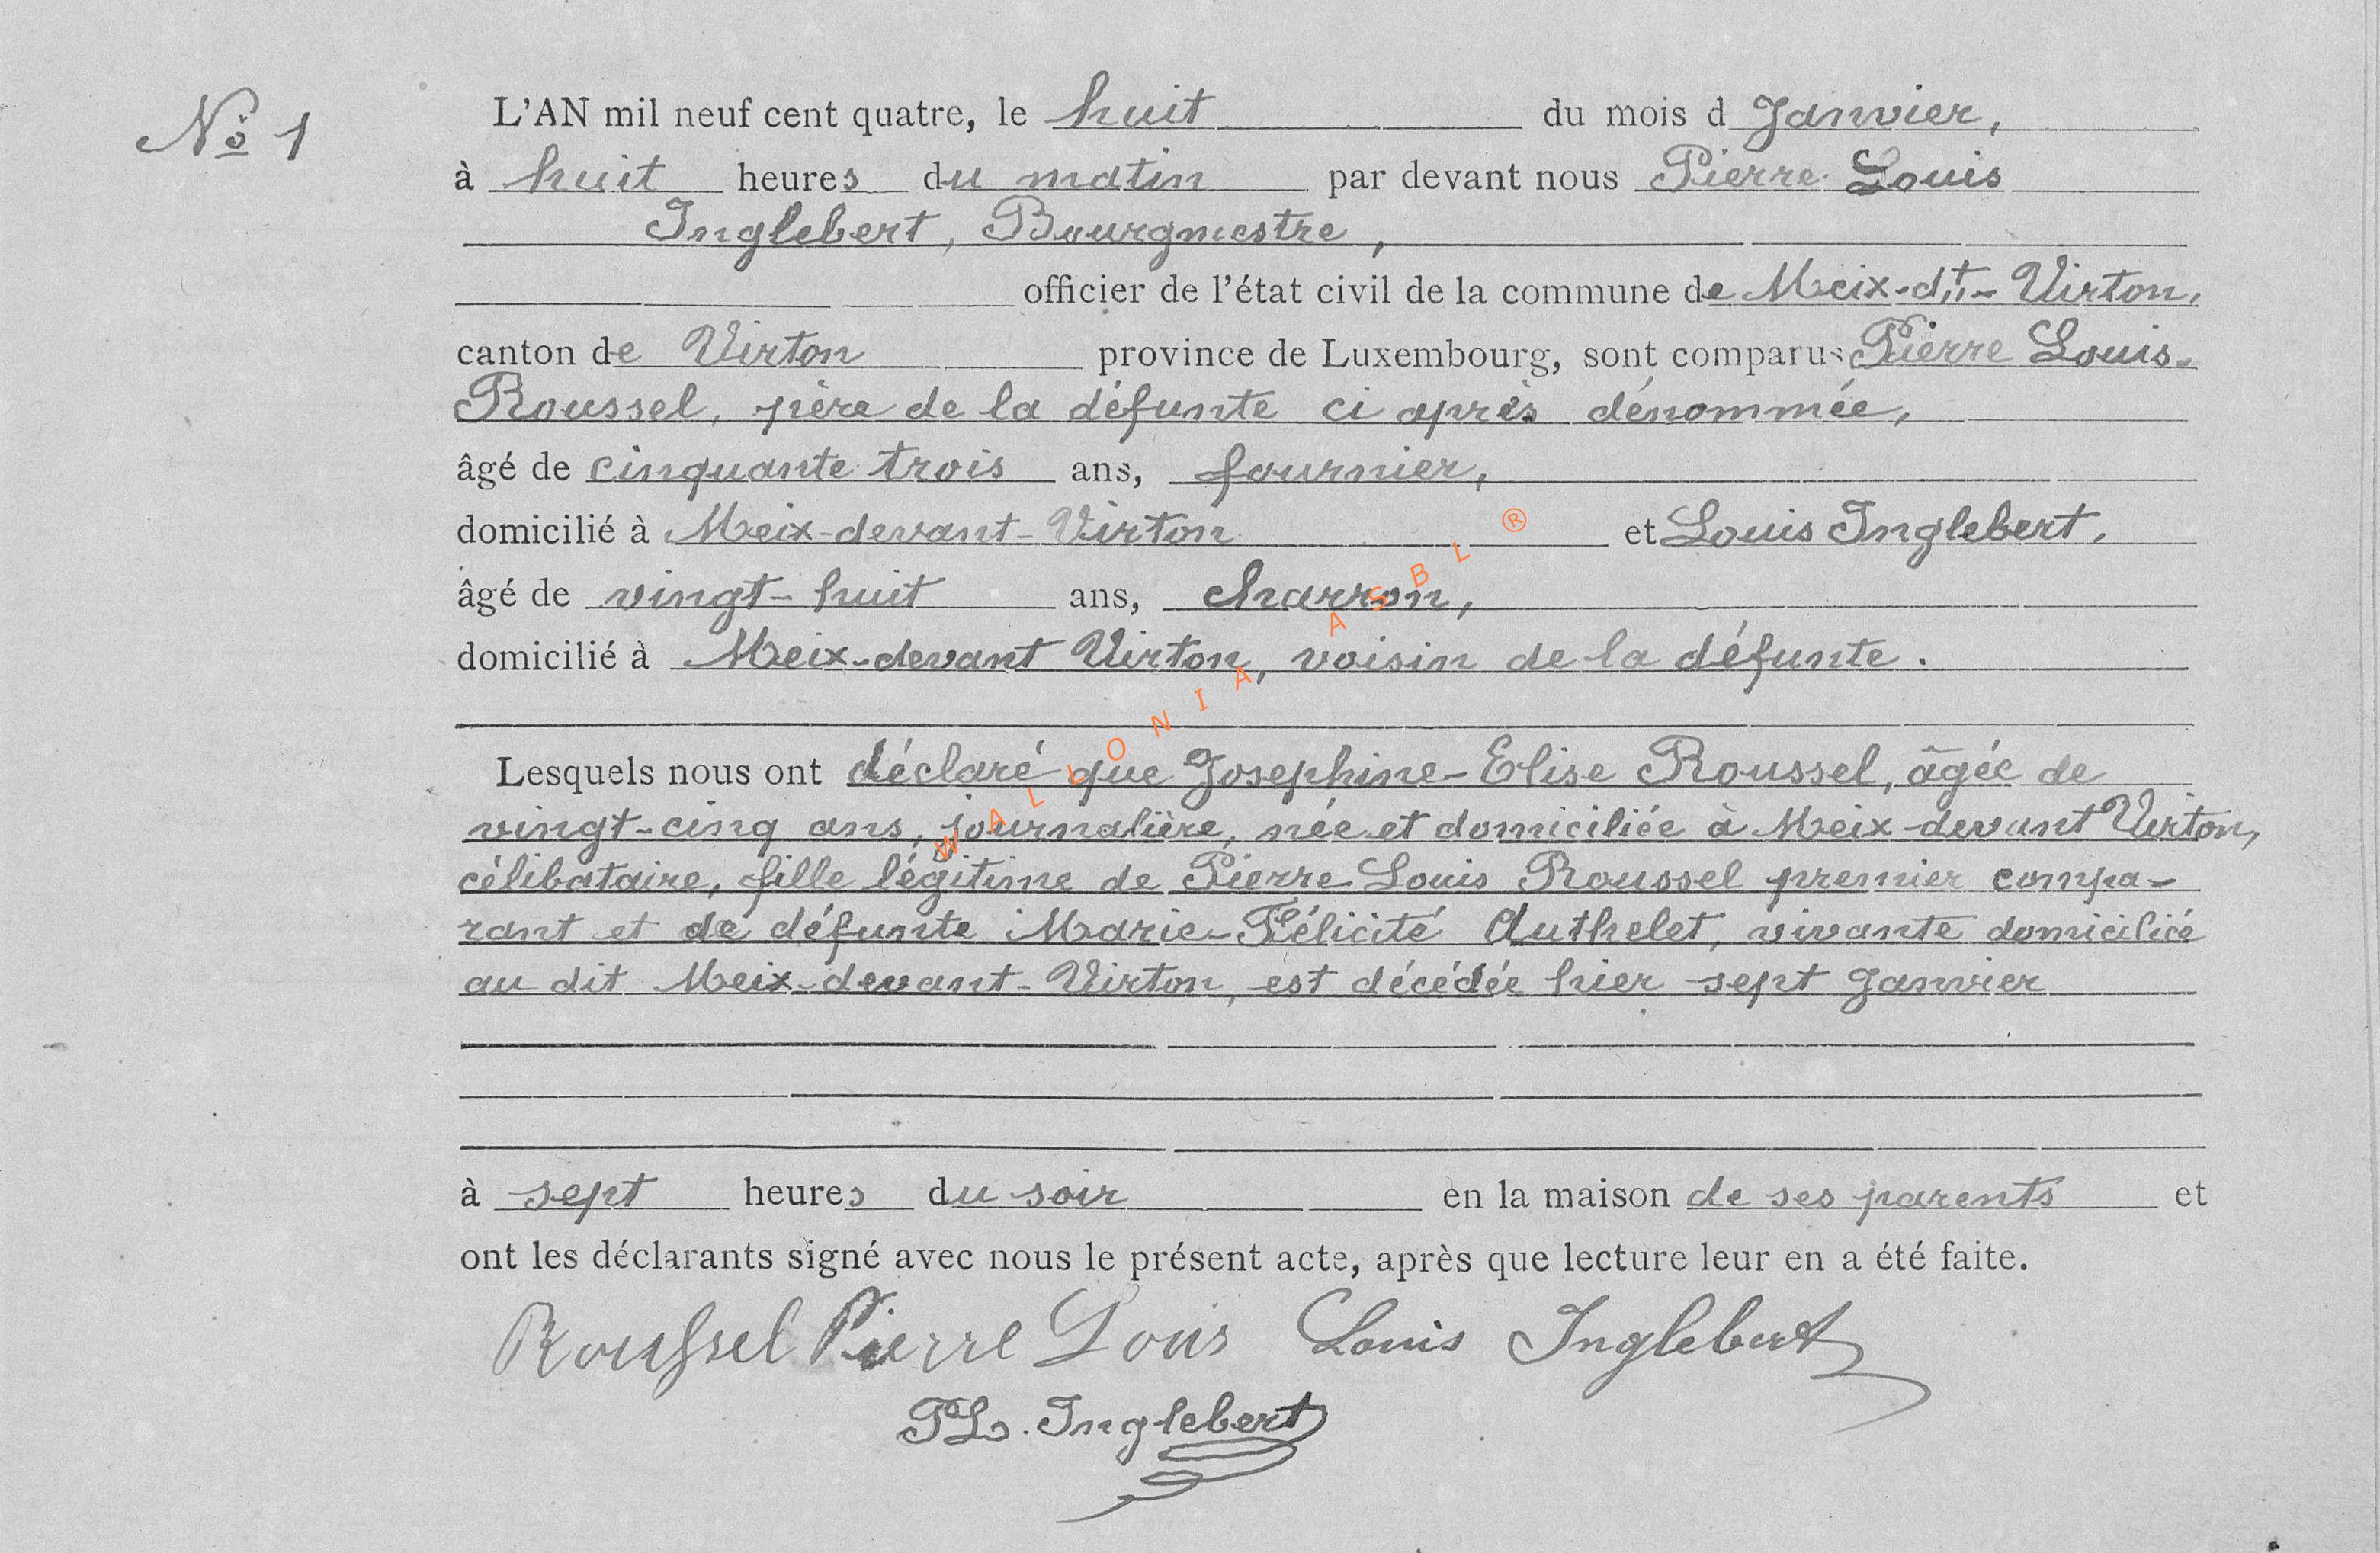 No 1
L'AN mil neuf cent quatre, le huit du mois d Janvier,
à huit heures du matin par devant nous Pierre Louis
Inglebert, Bourgmestre,
officier de l'état civil de la commune de Meix-dt-Virton,
canton de Virton province de Luxembourg, sont comparus Pierre Louis
Roussel, père de la défunte ci après dénommée,
âgé de cinquante trois ans, fournier,
domicilié à Meix-devant-Virton et Louis Inglebert,
âgé de vingt-huit ans, charron,
domicilié à Meix-devant Virton, voisin de la défunte.
Lesquels nous ont déclaré que Josephine-Elise Roussel, âgée de
vingt-cinq ans, journalière, née et domiciliée à Meix-devant Virton,
célibataire, fille légitime de Pierre Louis Roussel premier compa-
rant et de défunte Marie-Félicité Authelet, vivante domiciliée
au dit Meix-devant-Virton, est décédée hier sept Janvier
à sept heures du soir en la maison de ses parents et
ont les déclarants signé avec nous le présent acte, après que lecture leur en a été faite.
Roussel Pierre Louis Louis Inglebert
PL. Inglebert
WALLONIA ASBL ®